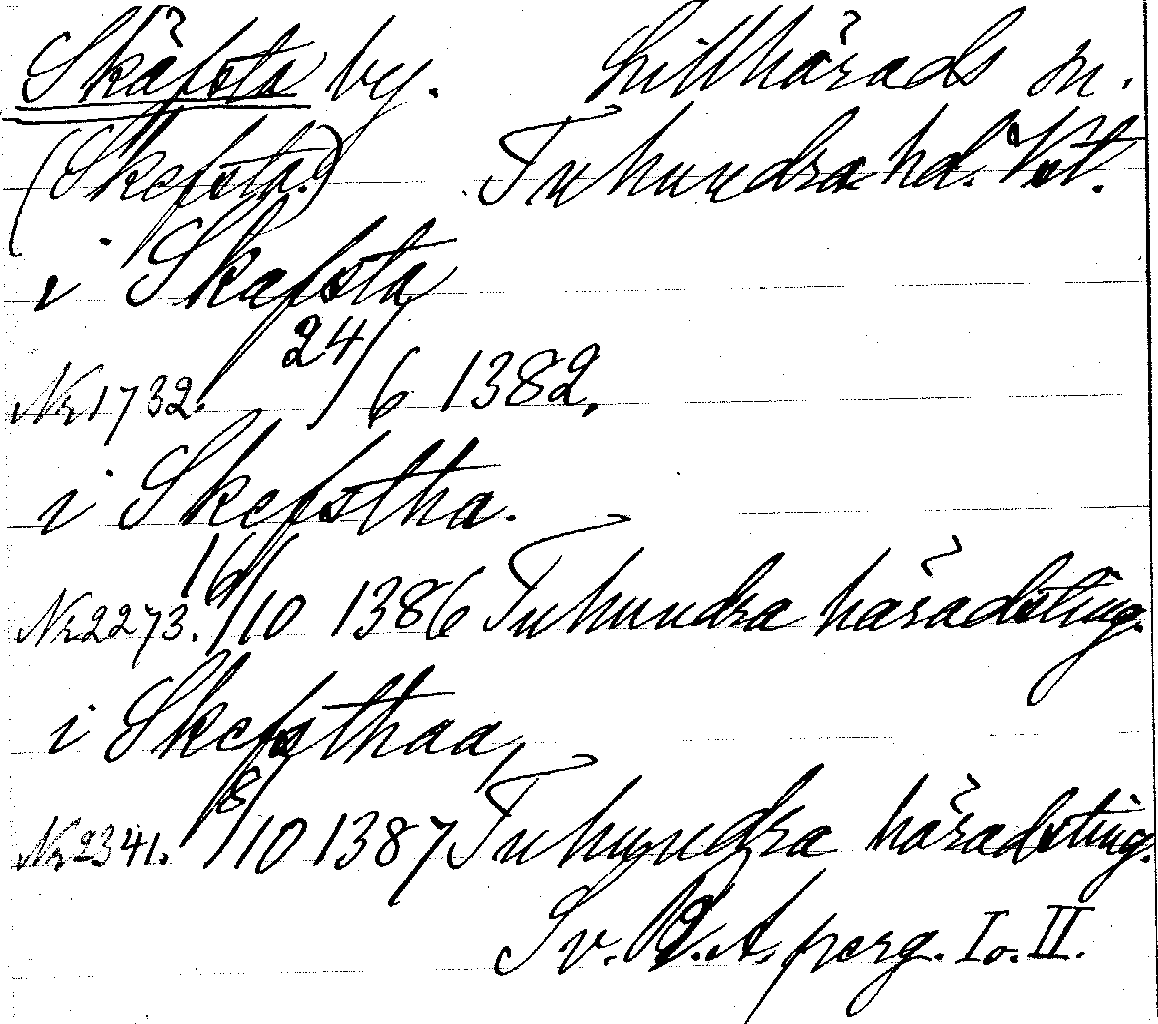 Skäfsta by. Lillhärads sn.
(Skefsta.) Tuhundra hd. Vstm.
i Skafsta
Nr 1732. 24/6 1382.
i Skefstha.
Nr 2273. 16/10 1386 Tuhundra häradsting.
i Skefsthaa,
Nr 2341. 8/10 1387 Tuhundra häradsting.
Sv. R. A. perg. I o. II.